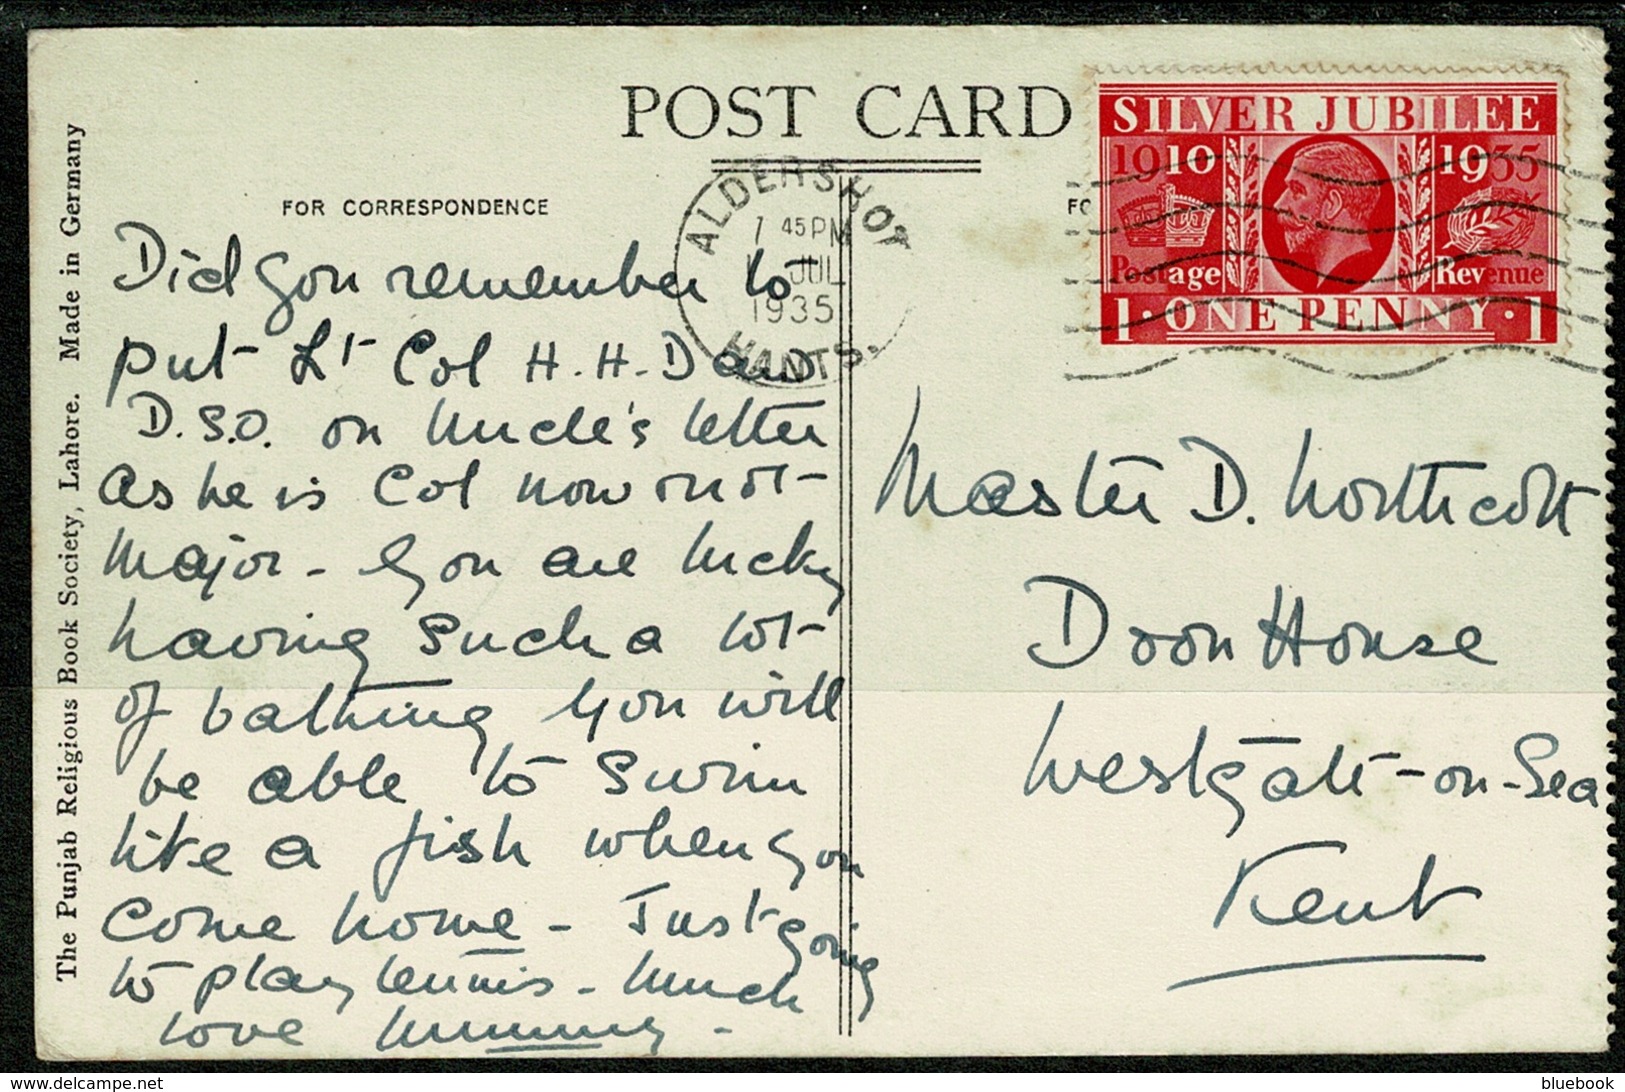 POST CARD
FOR CORRESPONDENCE
The Punjab Religious Book Society, Lahore. Made in Germany
ALDERSHOT
7 45 PM
JUL
1935
HANTS.
SILVER JUBILEE
1910 1935
Postage Revenue
1 · ONE PENNY · 1
Did you remember to
put Lt Col H. H. Davis
D.S.O. on Uncle's letter
as he is Col now not
Major - You are lucky
having such a lot
of bathing you will
be able to swim
like a fish when you
come home - Just going
to play tennis - Much
love Mummy -
Master D. Northcott
Doon House
Westgate-on-Sea
Kent
bluebook
www.delcampe.net